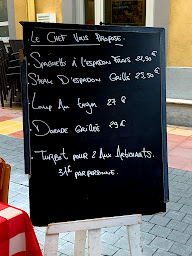 Le Chef Vous Propose.
Spaghetti à l'espadon Fumé 22,50 €
Steak D'espadon Grillé 23,50 €
Loup Au thym 27 €
Daurade Grillée 29 €
. Turbot pour 2 Aux Artichauts.
31€ par personne.